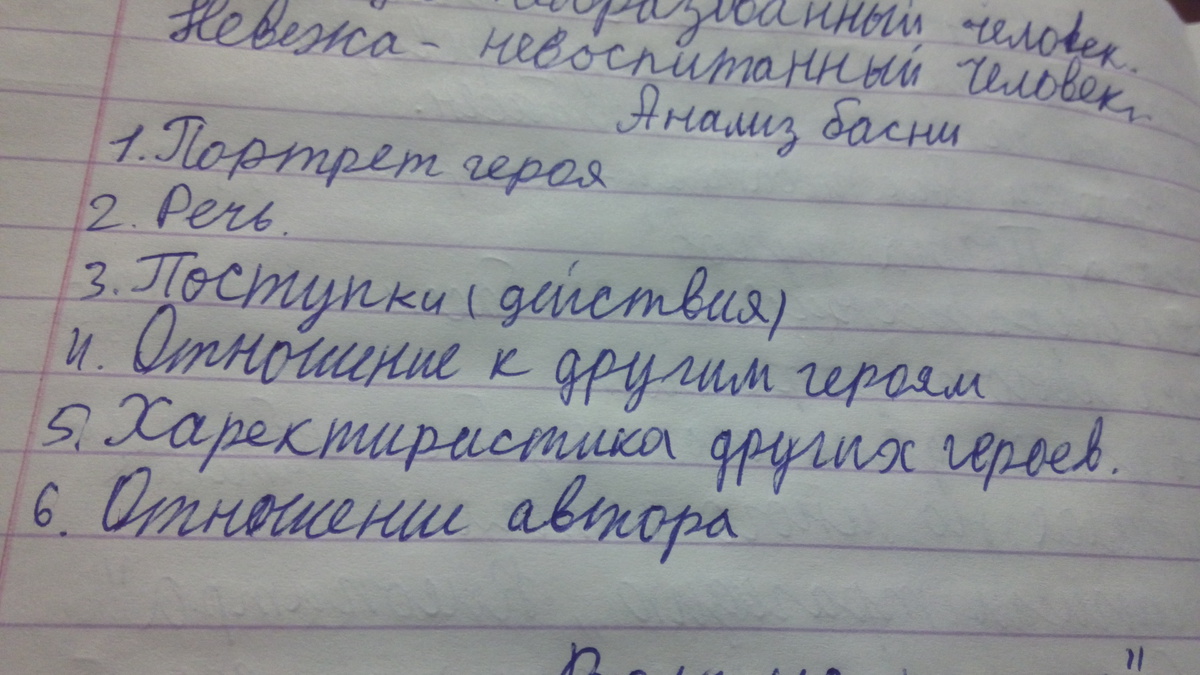 человек.
Невежа - невоспитанный человек.
Анализ басни
1. Портрет героя
2. Речь.
3. Поступки (действия)
4. Отношение к другим героям
5. Харектиристика других героев.
6. Отношение автора